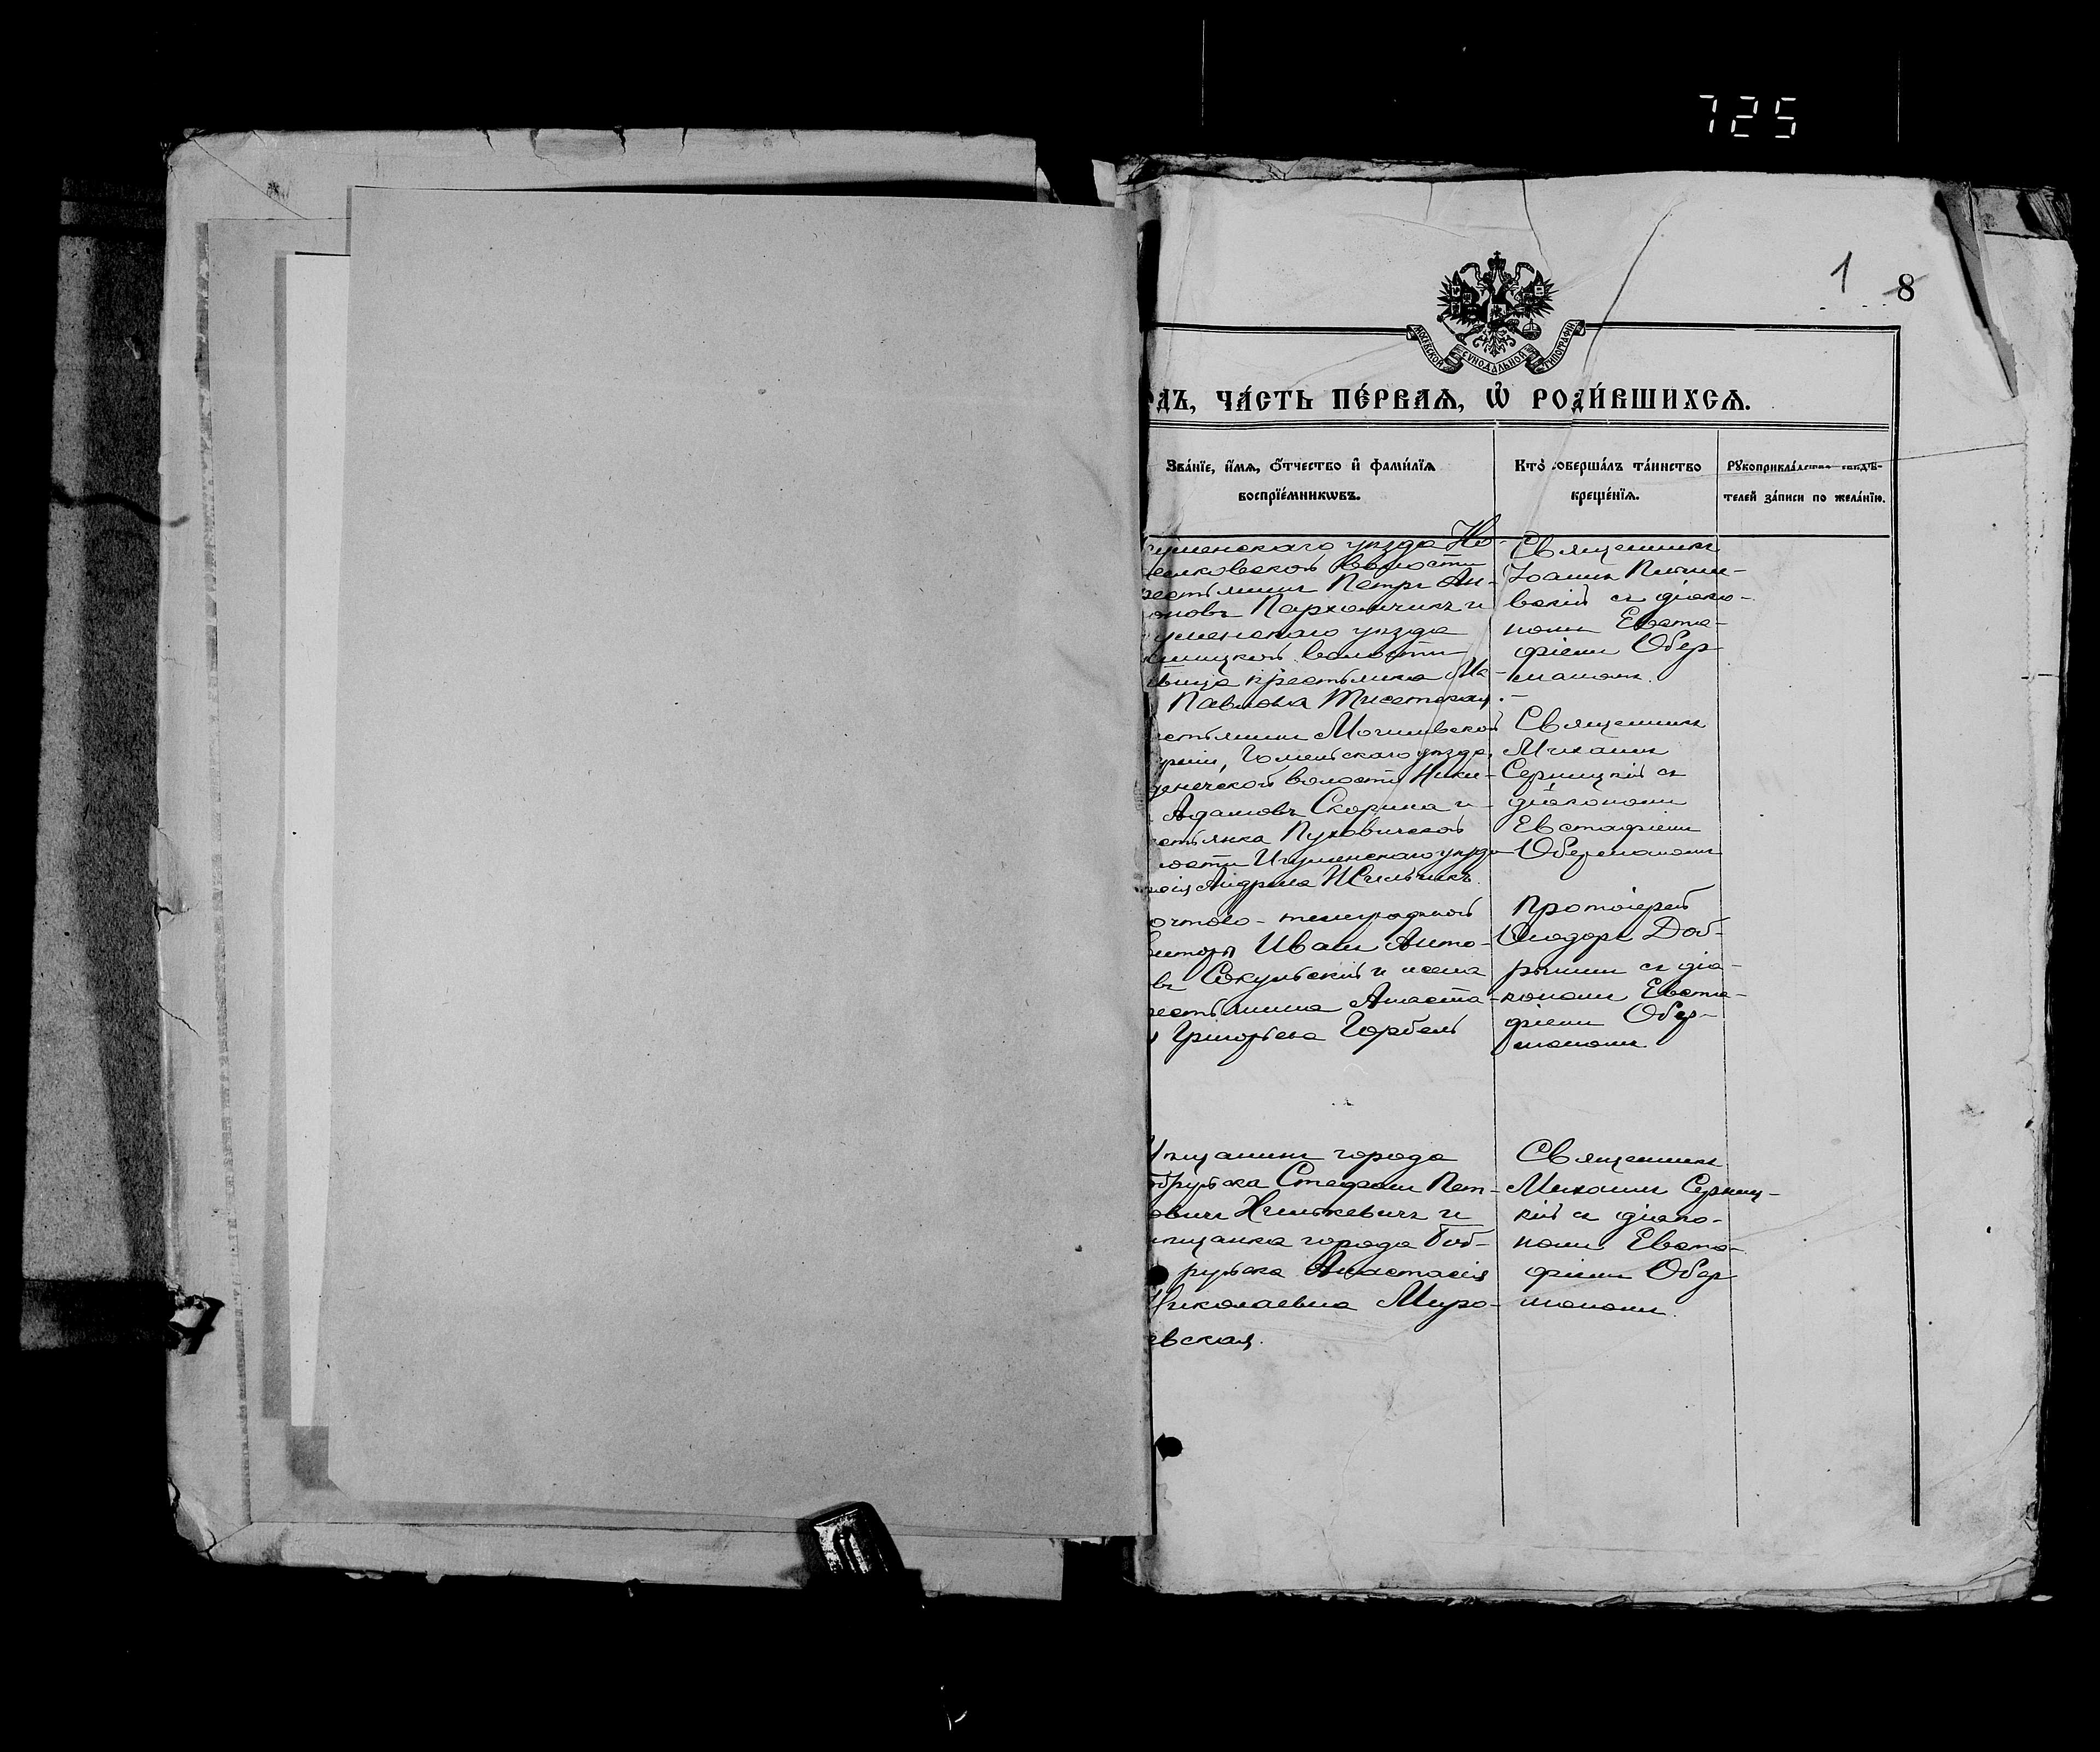 725
1 8
МОСКОВСКОЙ СѴНОДАЛЬНОЙ ТИПОГРАФІИ
дъ, ча́сть пе́рваѧ, ѡ҆ роди́вшихсѧ.
Зва́нїе, и҆́мѧ, ѻ҆́тчество и҆ фами́лїѧ
воспрїе́мникѡвъ.
Кто̀ соверша́лъ та́инство
креще́нїѧ.
Рꙋкоприкла́дство свидѣ́-
телей за́писи по жела́нїю.
гуменскаго уѣзда Но-
селковской волости
рестьянинъ Петръ Ан-
оновъ Пархомчикъ и
гуменскаго уѣзда
волости
вица крестьянка Ма-
Павлова
Священникъ
Іоаннъ
вскій съ діако-
номъ Евста-
фіемъ Обер-
маномъ.
естьянинъ Могилевской
ерніи, Гомельскаго уѣзда,
волости Ники-
Адамовъ Скорина и
естьянка Пуховичской
лости Игуменскаго уѣзда
Андреева
Священникъ
Михаилъ
Серницкій съ
діакономъ
Евстафіемъ
Обермановъ
очтово-телеграфной
конторы Иванъ Анто-
въ Сокульскій и жена
рестьянина Анаста-
Григорьева Горбель
Протоіерей
Ѳеодоръ Доб-
рынинъ съ діа-
кономъ Евста-
фіемъ Обер-
маномъ
Мѣщанинъ города
обруйска Стефанъ Пет-
овичъ и
мѣщанка города Боб-
руйска Анастасія
Николаевна Миро-
евская.
Священникъ
Михаилъ Серниц-
кій съ діако-
номъ Евста-
фіемъ Обер
маномъ.